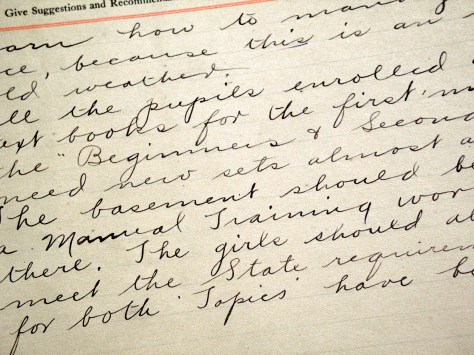 Give Suggestions and Recommen
arn how to man
ce, because this is an
ld weather
ll the pupils enrolled
ext books for the first,
the "Beginners & Second
need new sets almost a
The basement should be
a Manual Training wor
there. The girls should al
meet the State requirem
for both Topics have be